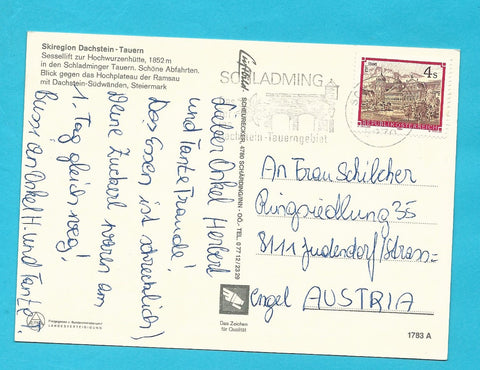 Skiregion Dachstein - Tauern
Sessellift zur Hochwurzenhütte, 1852 m
in den Schladminger Tauern. Schöne Abfahrten.
Blick gegen das Hochplateau der Ramsau
mit Dachstein-Südwänden, Steiermark
Lieber Onkel Herbert
und Tante Traude!
Das Essen ist schrecklich!
Deine Zuckerl waren am
1. Tag gleich weg!
Bussi an Onkel H. und Tante T.
SCHUBRECKER, 4780 SCHÄRDING/INN - OÖ. · TEL. 0 77 12/23 39
SCHLADMING
Dachstein-Tauerngebiet
4 S
REPUBLIK ÖSTERREICH
An Frau Schilcher
Ringsiedlung 35
8111 Judendorf/Strass=
engel AUSTRIA
Das Zeichen
für Qualität
1783 A
LANDESVERTEIDIGUNG